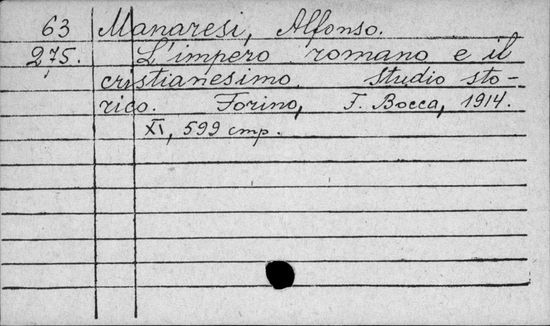 63 Manaresi, Alfonso.
275. L'impero romano e il
cristianesimo. Studio sto-
rico. Torino, F. Bocca, 1914.
XI, 599 стр.